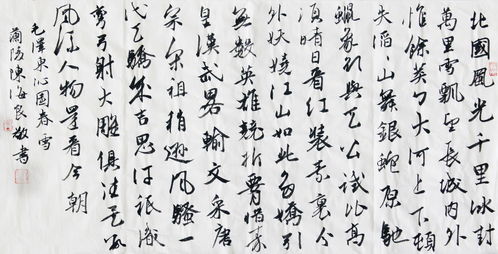 北國風光千里冰封
萬里雪飄望長城內外
惟餘莽々大河上下頓
失滔々山舞銀蛇原馳
蠟象欲與天公試比高
須晴日看紅裝素裹分
外妖嬈江山如此多嬌引
無數英雄競折腰惜秦
皇漢武畧輸文采唐
宗宋祖稍遜風騷一
代天驕成吉思汗祇識
彎弓射大雕俱往矣數
風流人物還看今朝
毛澤東沁園春雪
蘭陵陳海良敬書